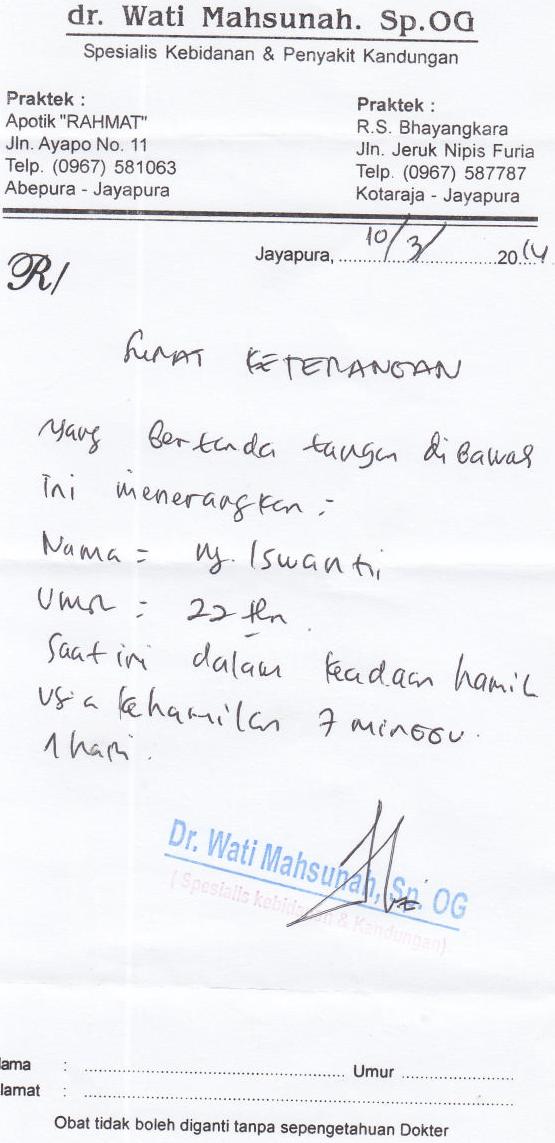 dr. Wati Mahsunah. Sp.OG
Spesialis Kebidanan & Penyakit Kandungan
Praktek :
Apotik "RAHMAT"
Jln. Ayapo No. 11
Telp. (0967) 581063
Abepura - Jayapura
Praktek :
R.S. Bhayangkara
Jln. Jeruk Nipis Furia
Telp. (0967) 587787
Kotaraja - Jayapura
Jayapura, 10/3/ 2014
R/
SURAT KETERANGAN
Yang bertanda tangan dibawah
ini menerangkan :
Nama = Ny. Iswanti
Umur : 22 thn
Saat ini dalam keadaan hamil
usia kehamilan 7 minggu
1 hari.
Dr. Wati Mahsunah, Sp. OG
( Spesialis kebidanan & Kandungan)
lama : ........ Umur ........
lamat : ........
Obat tidak boleh diganti tanpa sepengetahuan Dokter